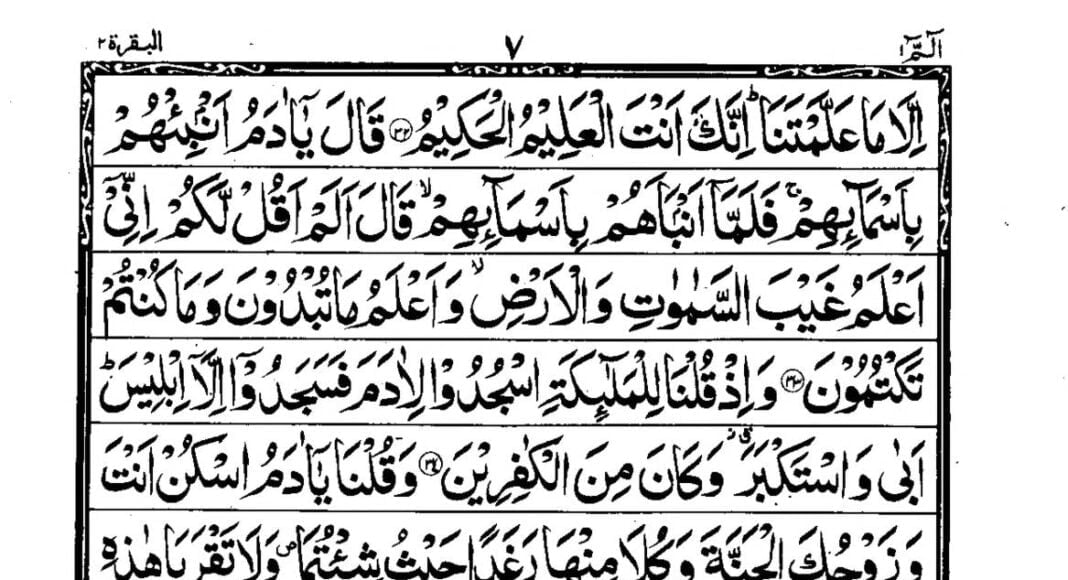 الٓمّٓ ١ ٧ البقرة ٢
اِلَّا مَا عَلَّمْتَنَا ؕ اِنَّكَ اَنْتَ الْعَلِيْمُ الْحَكِيْمُ ﴿۳۲﴾ قَالَ يٰۤاٰدَمُ اَنْۢبِئْهُمْ
بِاَسْمَآئِهِمْ ۚ فَلَمَّاۤ اَنْۢبَاَهُمْ بِاَسْمَآئِهِمْ ۙ قَالَ اَلَمْ اَقُلْ لَّكُمْ اِنِّيْۤ
اَعْلَمُ غَيْبَ السَّمٰوٰتِ وَالْاَرْضِ ۙ وَاَعْلَمُ مَا تُبْدُوْنَ وَمَا كُنْتُمْ
تَكْتُمُوْنَ ﴿۳۳﴾ وَاِذْ قُلْنَا لِلْمَلٰٓئِكَةِ اسْجُدُوْا لِاٰدَمَ فَسَجَدُوْۤا اِلَّاۤ اِبْلِيْسَ ؕ
اَبٰى وَاسْتَكْبَرَ ۗ وَكَانَ مِنَ الْكٰفِرِيْنَ ﴿۳۴﴾ وَقُلْنَا يٰۤاٰدَمُ اسْكُنْ اَنْتَ
وَزَوْجُكَ الْجَنَّةَ وَكُلَا مِنْهَا رَغَدًا حَيْثُ شِئْتُمَا ۖ وَلَا تَقْرَبَا هٰذِهِ